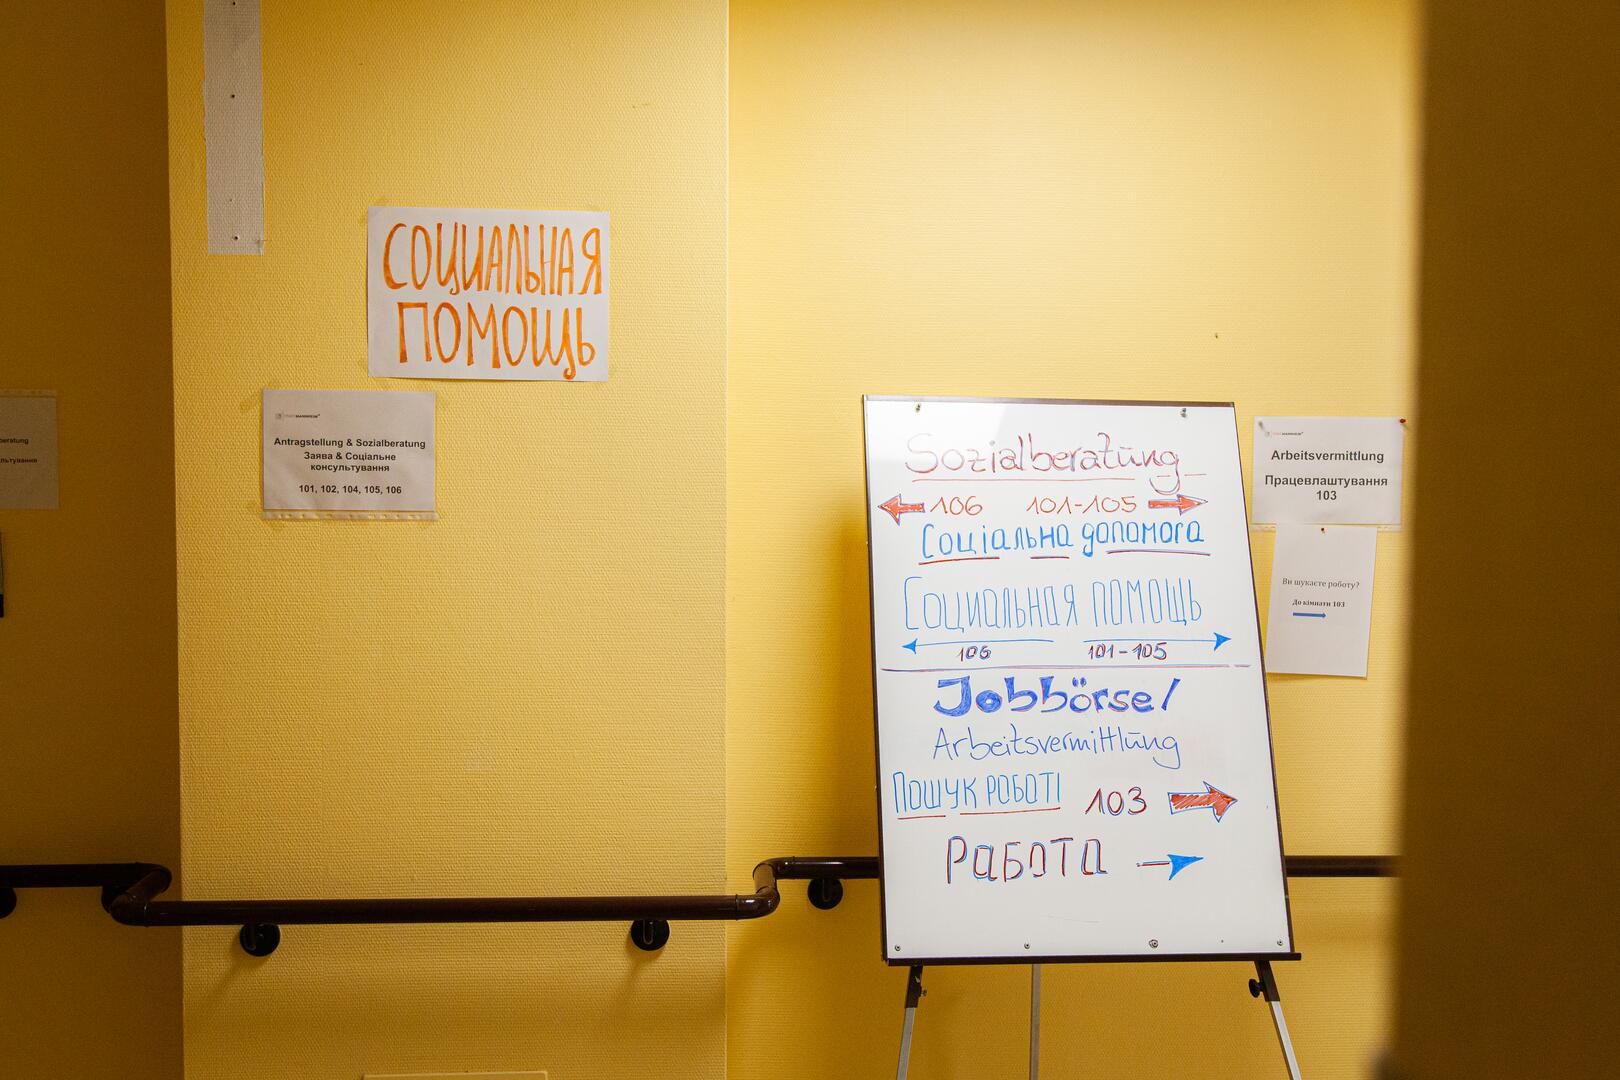 СОЦИАЛЬНАЯ
ПОМОЩЬ
Antragstellung & Sozialberatung
Заява & Соціальне
консультування
101, 102, 104, 105, 106
Sozialberatung
106 101-105
Соціальна допомога
Социальная помощь
106 101-105
Jobbörse/
Arbeitsvermittlung
Пошук роботі 103
Работа
Arbeitsvermittlung
Працевлаштування
103
Ви шукаєте роботу?
До кімнати 103